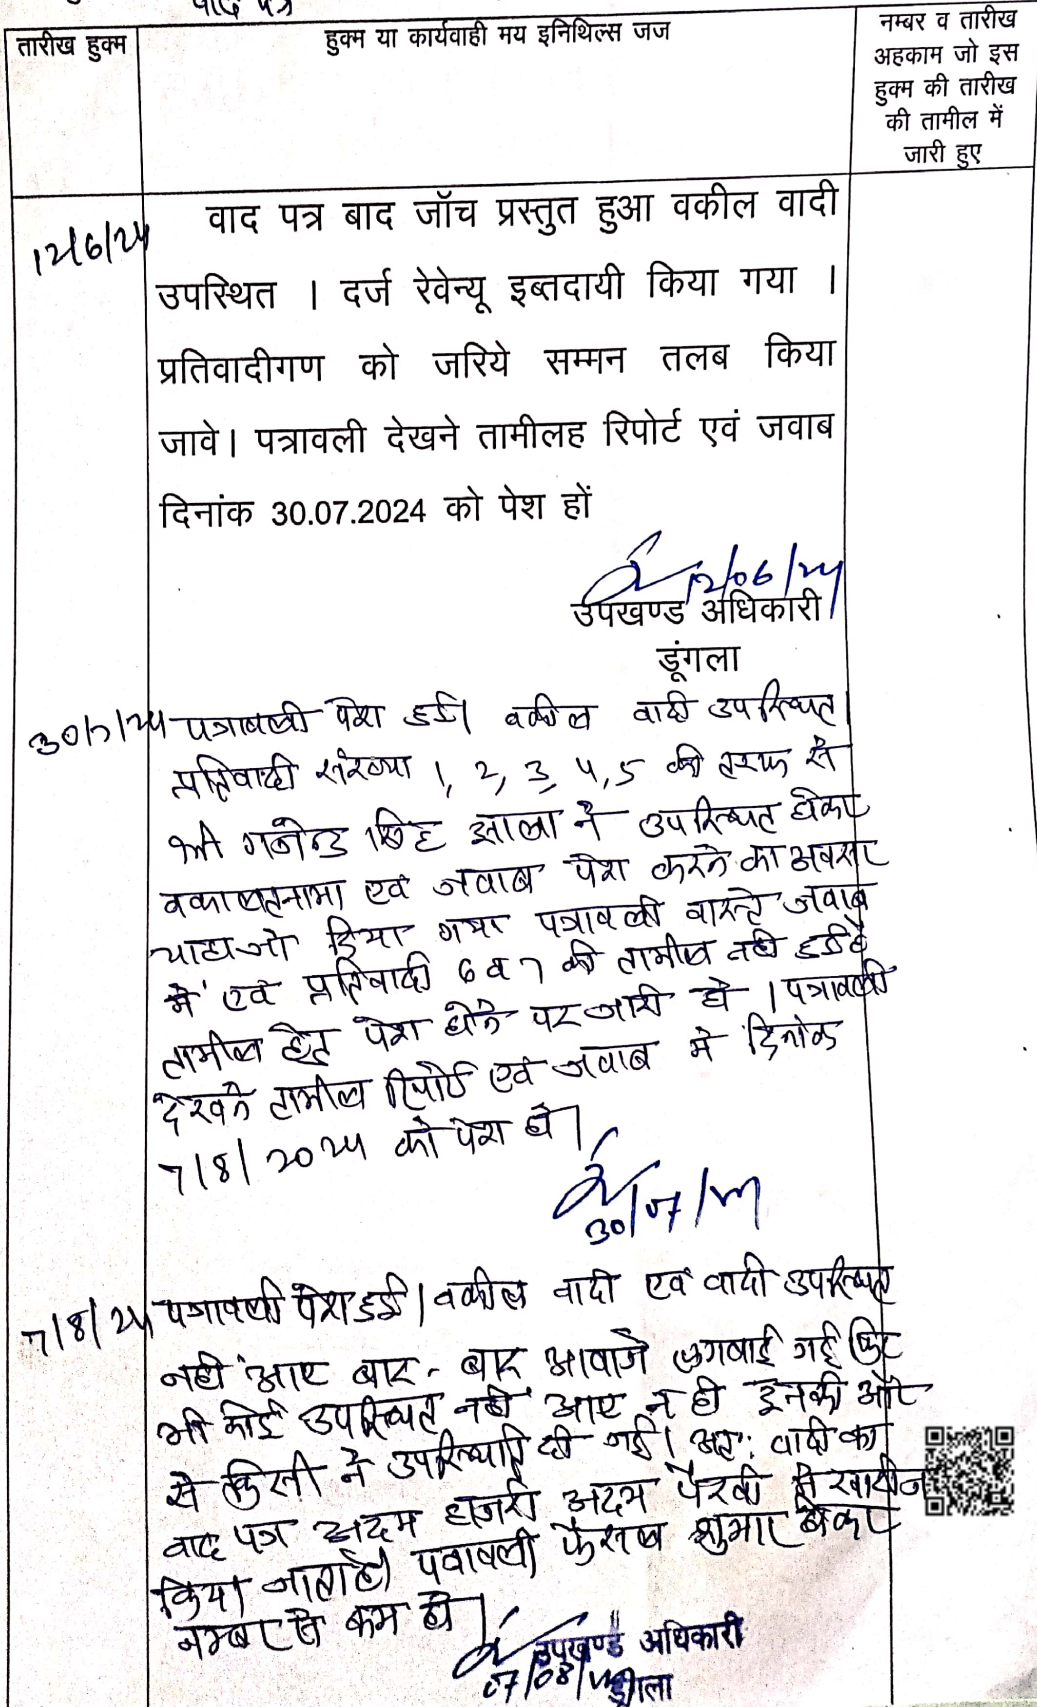 वाद पत्र
तारीख हुक्म
हुक्म या कार्यवाही मय इनिथिल्स जज
नम्बर व तारीख
अहकाम जो इस
हुक्म की तारीख
की तामील में
जारी हुए
12/6/24
वाद पत्र बाद जॉच प्रस्तुत हुआ वकील वादी
उपस्थित । दर्ज रेवेन्यू इब्तदायी किया गया ।
प्रतिवादीगण को जरिये सम्मन तलब किया
जावे। पत्रावली देखने तामीलह रिपोर्ट एवं जवाब
दिनांक 30.07.2024 को पेश हों
12/06/24
उपखण्ड अधिकारी
डूंगला
30/7/24 पत्रावली पेश हुई। वकील वादी उपस्थित।
प्रतिवादी संख्या 1, 2, 3, 4, 5 की तरफ से
श्री गजेन्द्र सिंह झाला ने उपस्थित होकर
वकालतनामा एवं जवाब पेश करने का अवसर
चाहा जो दिया गया पत्रावली वास्ते जवाब
में एवं प्रतिवादी 6 व 7 की तामील नही हुई है
तामील हेतु पेश होने पर जारी हो । पत्रावली
देखने तामील रिपोर्ट एवं जवाब में दिनांक
7/8/2024 को पेश हो।
30/07/24
7/8/24 पत्रावली पेश हुई। वकील वादी एवं वादी उपस्थित
नही आए बार-बार आवाजे लगवाई गई फिर
भी कोई उपस्थित नही आए न ही इनकी और
से किसी ने उपस्थिति दी गई। अतः वादी का
वाद पत्र अदम हाजरी अदम पैरवी में खारीज
किया जाता है। पत्रावली फैसल शुमार होकर
नम्बर से कम हो।
उपखण्ड अधिकारी
07/08/24
डूंगला